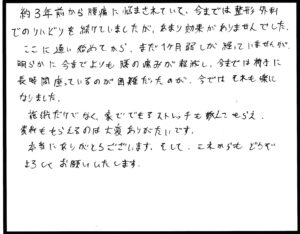 約3年前から腰痛に悩まされていて、今までは整形外科
でのリハビリを続けていましたが、あまり効果がありませんでした。
ここに通い始めてから、まだ1ヶ月弱しか経っていませんが、
明らかに今までよりも腰の痛みが軽減し、今までは椅子に
長時間座っているのが困難だったのが、今ではそれも楽に
なりました。
施術だけでなく、家でできるストレッチも教えてもらえ、
資料ももらえるのは大変ありがたいです。
本当にありがとうございます。そして、これからもどうぞ
よろしくお願いいたします。